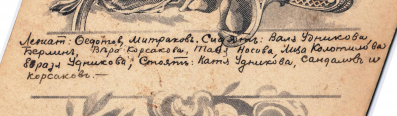 Лежат: Федотов, Митраковъ, Сидятъ: Валя Удникова,
Берлинъ, Вѣра Корсакова, Таня Носова, Лиза Колотилова
Удникова; Стоятъ: Катя Удникова, Сандалов и
Корсаковъ.—